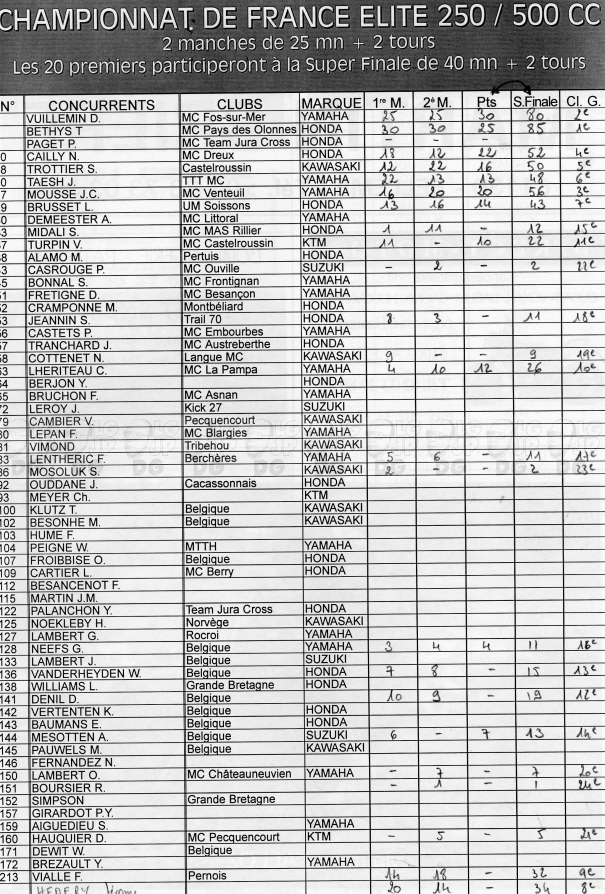 CHAMPIONNAT DE FRANCE ELITE 250 / 500 CC
2 manches de 25 mn + 2 tours
Les 20 premiers participeront à la Super Finale de 40 mn + 2 tours
N° CONCURRENTS CLUBS MARQUE 1re M. 2e M. Pts S.Finale Cl. G.
VUILLEMIN D. MC Fos-sur-Mer YAMAHA 25 25 30 80 2e
BETHYS T MC Pays des Olonnes HONDA 30 30 25 85 1e
PAGET P. MC Team Jura Cross HONDA - - -
0 CAILLY N. MC Dreux HONDA 18 12 22 52 4e
8 TROTTIER S. Castelroussin KAWASAKI 12 22 16 50 5e
0 TAESH J. TTT MC YAMAHA 22 13 13 48 6e
7 MOUSSE J.C. MC Venteuil YAMAHA 16 20 20 56 3e
9 BRUSSET L. UM Soissons HONDA 13 16 14 43 7e
0 DEMEESTER A. MC Littoral YAMAHA
3 MIDALI S. MC MAS Rillier HONDA 1 11 - 12 15e
7 TURPIN V. MC Castelroussin KTM 11 - 10 22 11e
8 ALAMO M. Pertuis HONDA
3 CASROUGE P. MC Ouville SUZUKI - 2 - 2 22e
5 BONNAL S. MC Frontignan YAMAHA
1 FRETIGNE D. MC Besançon YAMAHA
2 CRAMPONNE M. Montbéliard HONDA
3 JEANNIN S. Trail 70 HONDA 8 3 - 11 18e
6 CASTETS P. MC Embourbes YAMAHA
7 TRANCHARD J. MC Austreberthe HONDA
8 COTTENET N. Langue MC KAWASAKI 9 - - 9 19e
3 LHERITEAU C. MC La Pampa YAMAHA 4 10 12 26 10e
4 BERJON Y. HONDA
5 BRUCHON F. MC Asnan YAMAHA
2 LEROY J. Kick 27 SUZUKI
79 CAMBIER V. Pecquencourt KAWASAKI
80 LEPAN F. MC Blargies YAMAHA
81 VIMOND Tribehou KAWASAKI
83 LENTHERIC F. Berchères YAMAHA 5 6 - 11 17e
86 MOSOLUK S. KAWASAKI 2 - - 2 23e
92 OUDDANE J. Cacassonnais HONDA
93 MEYER Ch. KTM
100 KLUTZ T. Belgique KAWASAKI
102 BESONHE M. Belgique KAWASAKI
103 HUME F.
104 PEIGNE W. MTTH YAMAHA
107 FROIBBISE O. Belgique HONDA
109 CARTIER L. MC Berry HONDA
112 BESANCENOT F.
115 MARTIN J.M.
122 PALANCHON Y. Team Jura Cross HONDA
125 NOEKLEBY H. Norvège KAWASAKI
127 LAMBERT G. Rocroi YAMAHA
128 NEEFS G. Belgique YAMAHA 3 4 4 11 16e
133 LAMBERT J. Belgique SUZUKI
136 VANDERHEYDEN W. Belgique HONDA 7 8 - 15 13e
138 WILLIAMS L. Grande Bretagne HONDA
141 DENIL D. Belgique 10 9 - 19 12e
142 VERTENTEN K. Belgique HONDA
143 BAUMANS E. Belgique HONDA
144 MESOTTEN A. Belgique SUZUKI 6 - 7 13 14e
145 PAUWELS M. Belgique KAWASAKI
146 FERNANDEZ N.
150 LAMBERT O. MC Châteauneuvien YAMAHA - 7 - 7 20e
151 BOURSIER R. - 1 - 1 24e
152 SIMPSON Grande Bretagne
157 GIRARDOT P.Y.
159 AIGUEDIEU S. YAMAHA
160 HAUQUIER D. MC Pecquencourt KTM - 5 - 5 21e
171 DEWIT W. Belgique
172 BREZAULT Y. YAMAHA
213 VIALLE F. Pernois 14 18 - 32 9e
20 14 - 34 8e